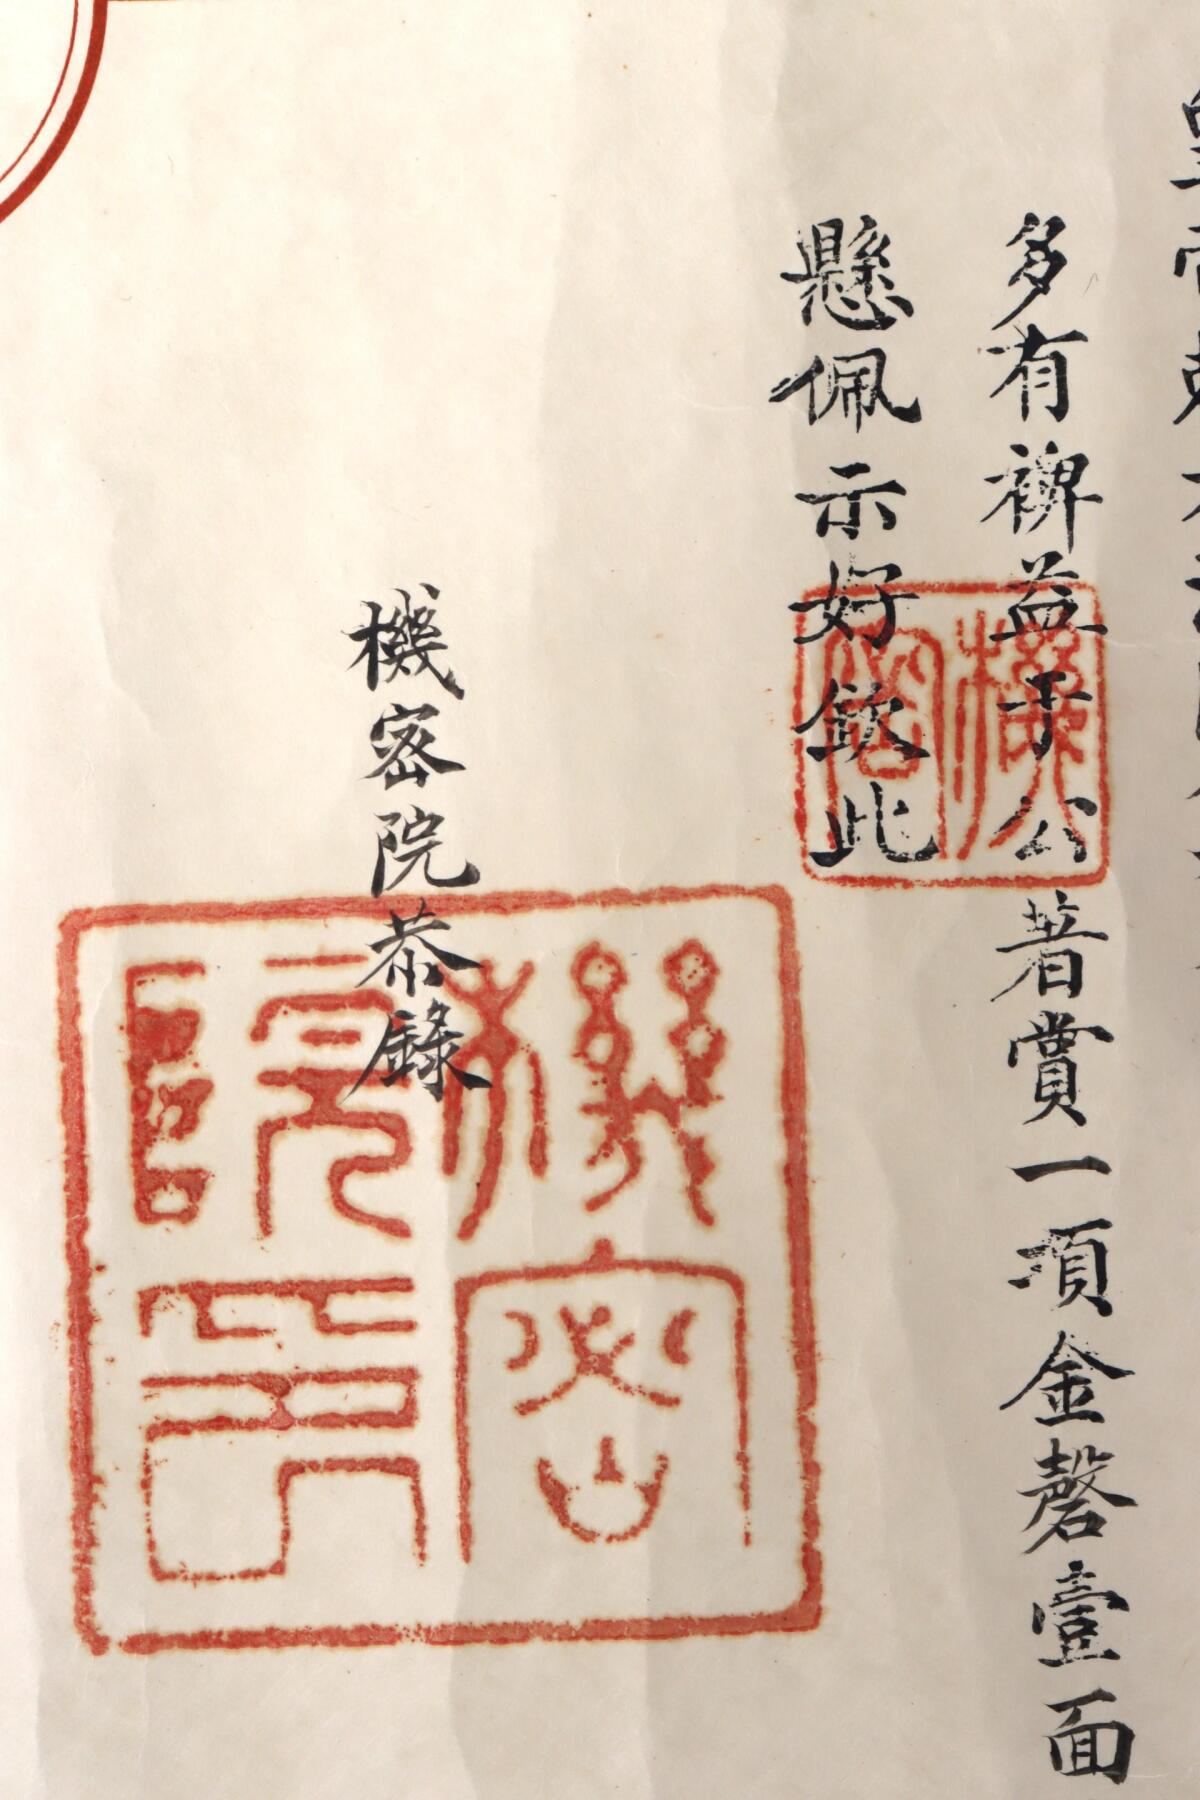 多有裨益于公著賞一項金磬壹面
懸佩示好欽此
機密院恭錄
機密
機密院印